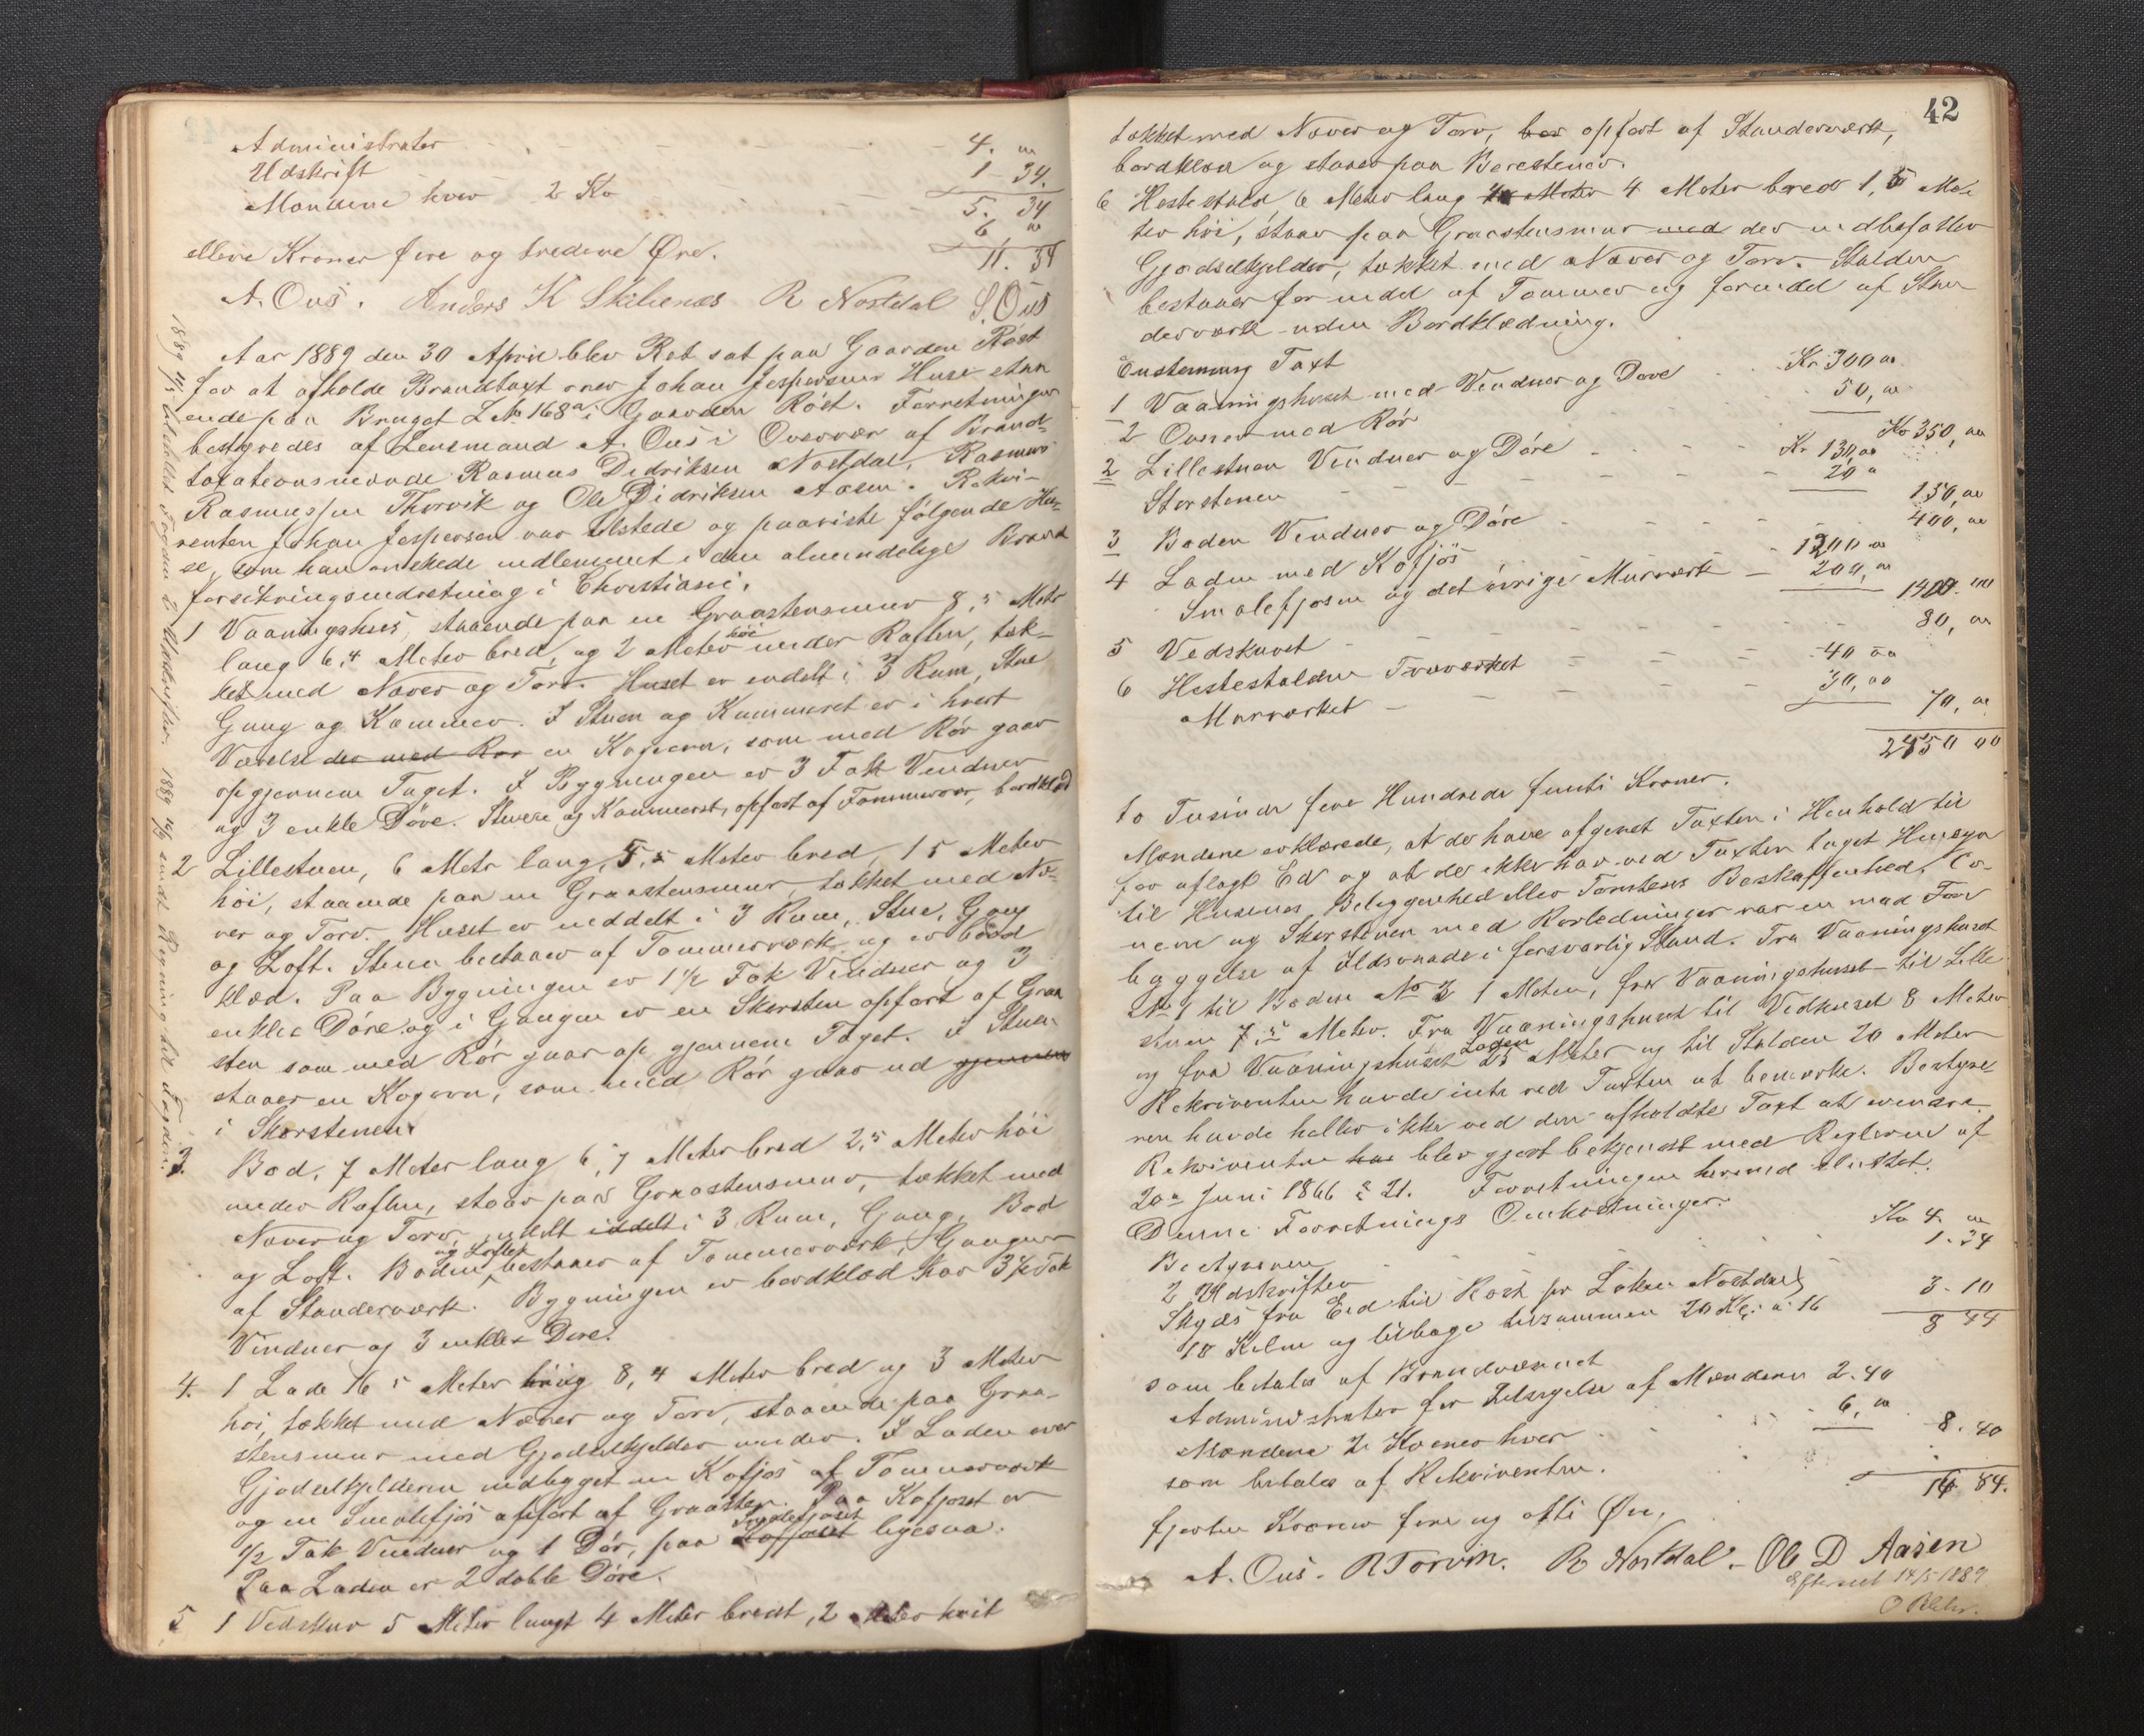 Administrater 4. "
Udskrift 1 - 34.
Mændene hver 2 Kr
5. 34
6 "
elleve Kroner fire og tredeve Øre. 11. 34
A. Ous. Anders K Skibenæs R Nostdal S. Ous
Aar 1889 den 30 April blev Ret sat paa Gaarden Röst
for at afholde Brandtaxt over Johan Jespersens Huse staa
ende paa Bruget L № 168a i Gaarden Röst. Forretningen
bestyredes af Lensmand A. Ous i Overvær af Brand-
taxationsmænde Rasmus Didriksen Nostdal, Rasmus
Rasmussen Thorvik og Ole Didriksen Aasen. Rekvi-
renten Johan Jespersen var tilstede og paaviste følgende Hu-
se, som han önskede indlemmet i den almindelige Brand
forsikringsindretning i Christiania.
1 Vaaningshus, staaende paa en Graastensmur 8,5 Meter
lang 6,4 Meter bred, og 2 Meter höi under Raften, tæk-
ket med Næver og Torv. Huset er inddelt i 3 Rum, Stue
Gang og Kammer. I Stuen og Kammeret er i hvert
Værelse der med Rør en Kogeovn, som med Rör gaar
op gjennem Taget. I Bygningen er 3 Fak Vinduer
og 3 enkle Döre. Stuen og Kammerset, opfört af Tømmervær, bordklæd
2 Lillestuen, 6 Meter lang, 5,5 Meter bred, 1 5 Meter
höi, staaende paa en Graastensmur, tækket med Næ-
ver og Torv. Huset er inddelt i 3 Rum, Stue, Gang
og Loft. Stuen bestaaer af Tømmerværk og er bord
klæd. Paa Bygningen er 1 1/2 Fak Vinduer og 3
enkle Döre og i Gangen er en Skorsten opfört af Graa
sten som med Rör gaar op gjennem Taget. I Stuen
staaer en Kogeovn, som med Rör gaar ud gjennem
i Skorstenen.
3. Bod, 7 Meter lang 6,7 Meter bred 2,5 Meter höi
under Raften, staar paa Graastensmur, tækket med
Næver og Torv, inddelt i 3 Rum, Gang, Bod
og Loft. Boden og Loftet bestaaer af Tømmerværk, Gangen
af Standerværk. Bygningen er bordklæd har 3 1/2 Fak
Vinduer og 3 enkle Døre.
4. 1 Lade 16 5 Meter lang 8,4 Meter bred og 3 Meter
höi, tækket med Næver og Torv, staaende paa Graa-
stensmur med Gjødselkjelder under. I Laden over
Gjødselkjelderen indbygget en Kofjøs af Tømmerværk
og en Smalefjös opfört af Graasten. Paa Kofjøset er
1/2 Fak Vinduer og 1 Dör, paa Smalefjøset Kofjøset ligesaa.
Paa Laden er 2 doble Döre.
5 1 Vedskur 5 Meter langt 4 Meter bredt, 2 Meter höit
42
tækket med Næver og Torv, opfört af Standerværk,
bordklæd og staaer paa Børestener.
6 Hestestald 6 Meter lang 4 Meter 4 Meter bred 1,5 Me-
ter höi, staar paa Graastensmur med der indbefatter
Gjødselkjelder, tækket med Næver og Torv. Stalden
bestaaer for en del af Tømmer og for en del af Stan
derværk uden Bordklædning.
Enstemmig Taxt
1 Vaaningshuset med Vinduer og Døre Kr 300 "
2 Ovner med Rör 50, "
Kr 350, "
2 Lillestuen Vinduer og Döre Kr. 130, "
Skorstenen 20 "
150, "
3 Boden Vinduer og Döre 400, "
4 Laden med Kofjös 1200 "
Smalefjøsen og det övrige Murværk 200, "
1400 "
5 Vedskuret 80, "
6 Hestestalden Træværket 40 "
Murværket 30, "
70, "
2450 00
to Tusinde fire Hundrede femti Kroner.
Mændene erklærede, at de have afgivet Taxten i Henhold til
før aflagt Ed og at de ikke har ved Taxten taget Hensyn
til Husenes Beliggenhed eller Tomtens Beskaffenhed. Ov-
nene og Skorstenen med Rørledninger var en mod For
byggelse af Ildsvaade i forsvarlig Stand. Fra Vaaningshuset
№ 1 til Boden № 3 1 Meter, fra Vaaningshuset til Lille
stuen 7,5 Meter. Fra Vaaningshuset til Vedhuset 8 Meter
og fra Vaaningshuset Laden 25 Meter og til Stalden 20 Meter
Rekvirenten havde intet ved Taxten at bemærke. Bestyre-
ren havde heller ikke ved den afholdte Taxt at erindre.
Rekvirenten blev gjort bekjendt med Reglerne af
20de Juni 1866 § 21. Forretningen hermed sluttet.
Denne Forretnings Omkostninger:
Bestyreren Kr 4. "
2 Udskrifter 1. 34
Skyds fra Eid til Röst pr Løken Nostdal
10 Kilm og tilbage tilsammen 20 Kl. à 16 3 - 10
8 44
som betales af Brandvæsenet
Administrater for Tilsigelse af Mændene 2. 40
Mændene 2 Kroner hver 6, "
8. 40
som betales af Rekvirenten.
16 84.
fjorten Kroner fire og otti Øre,
A. Ous. R Torvik. R Nostdal - Ole D Aasen
Efterseet 14/5 1889